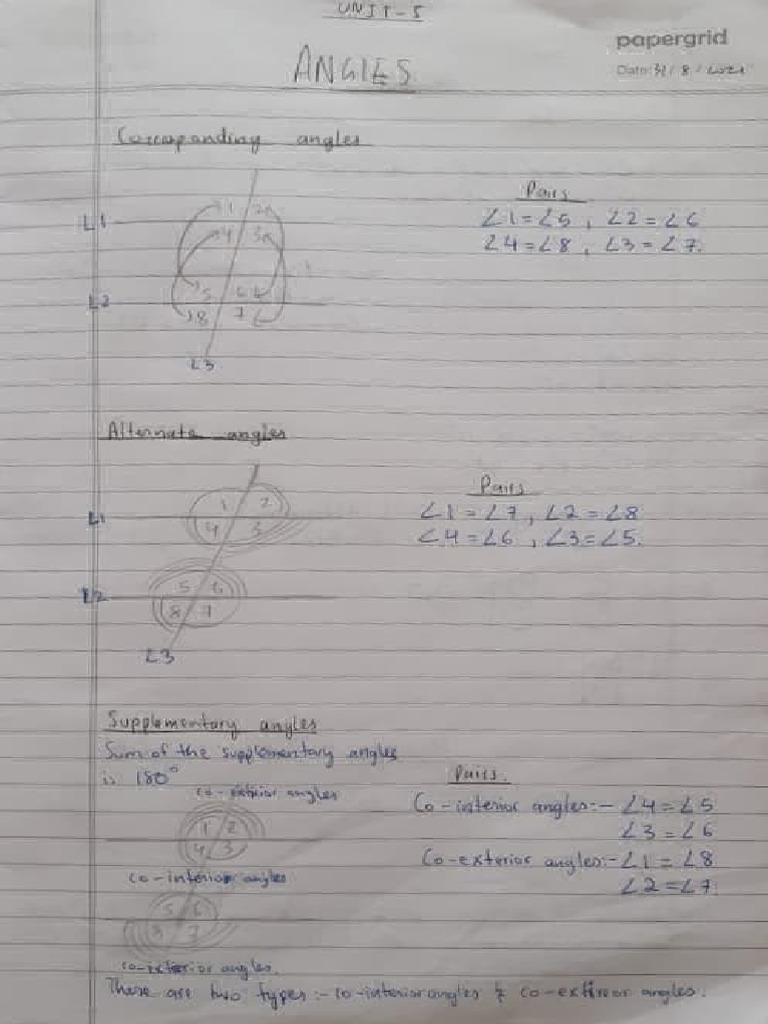 UNIT-5
papergrid
ANGLES
Date: 31 / 8 / 2021
Corresponding angles
Pairs
∠1=∠5 , ∠2=∠6
∠4=∠8 , ∠3=∠7.
L1
1 2
4 3
L2
5 6
8 7
L3
Alternate angles
Pairs
∠1=∠7 , ∠2=∠8
∠4=∠6 , ∠3=∠5.
L1
1 2
4 3
L2
5 6
8 7
L3
Supplementary angles
Sum of the supplementary angles
is 180°
Pairs.
co-exterior angles
Co-interior angles:- ∠4=∠5
∠3=∠6
Co-exterior angles:- ∠1=∠8
∠2=∠7.
1 2
4 3
co-interior angles
5 6
8 7
co-exterior angles.
There are two types:- co-interior angles & co-exterior angles.